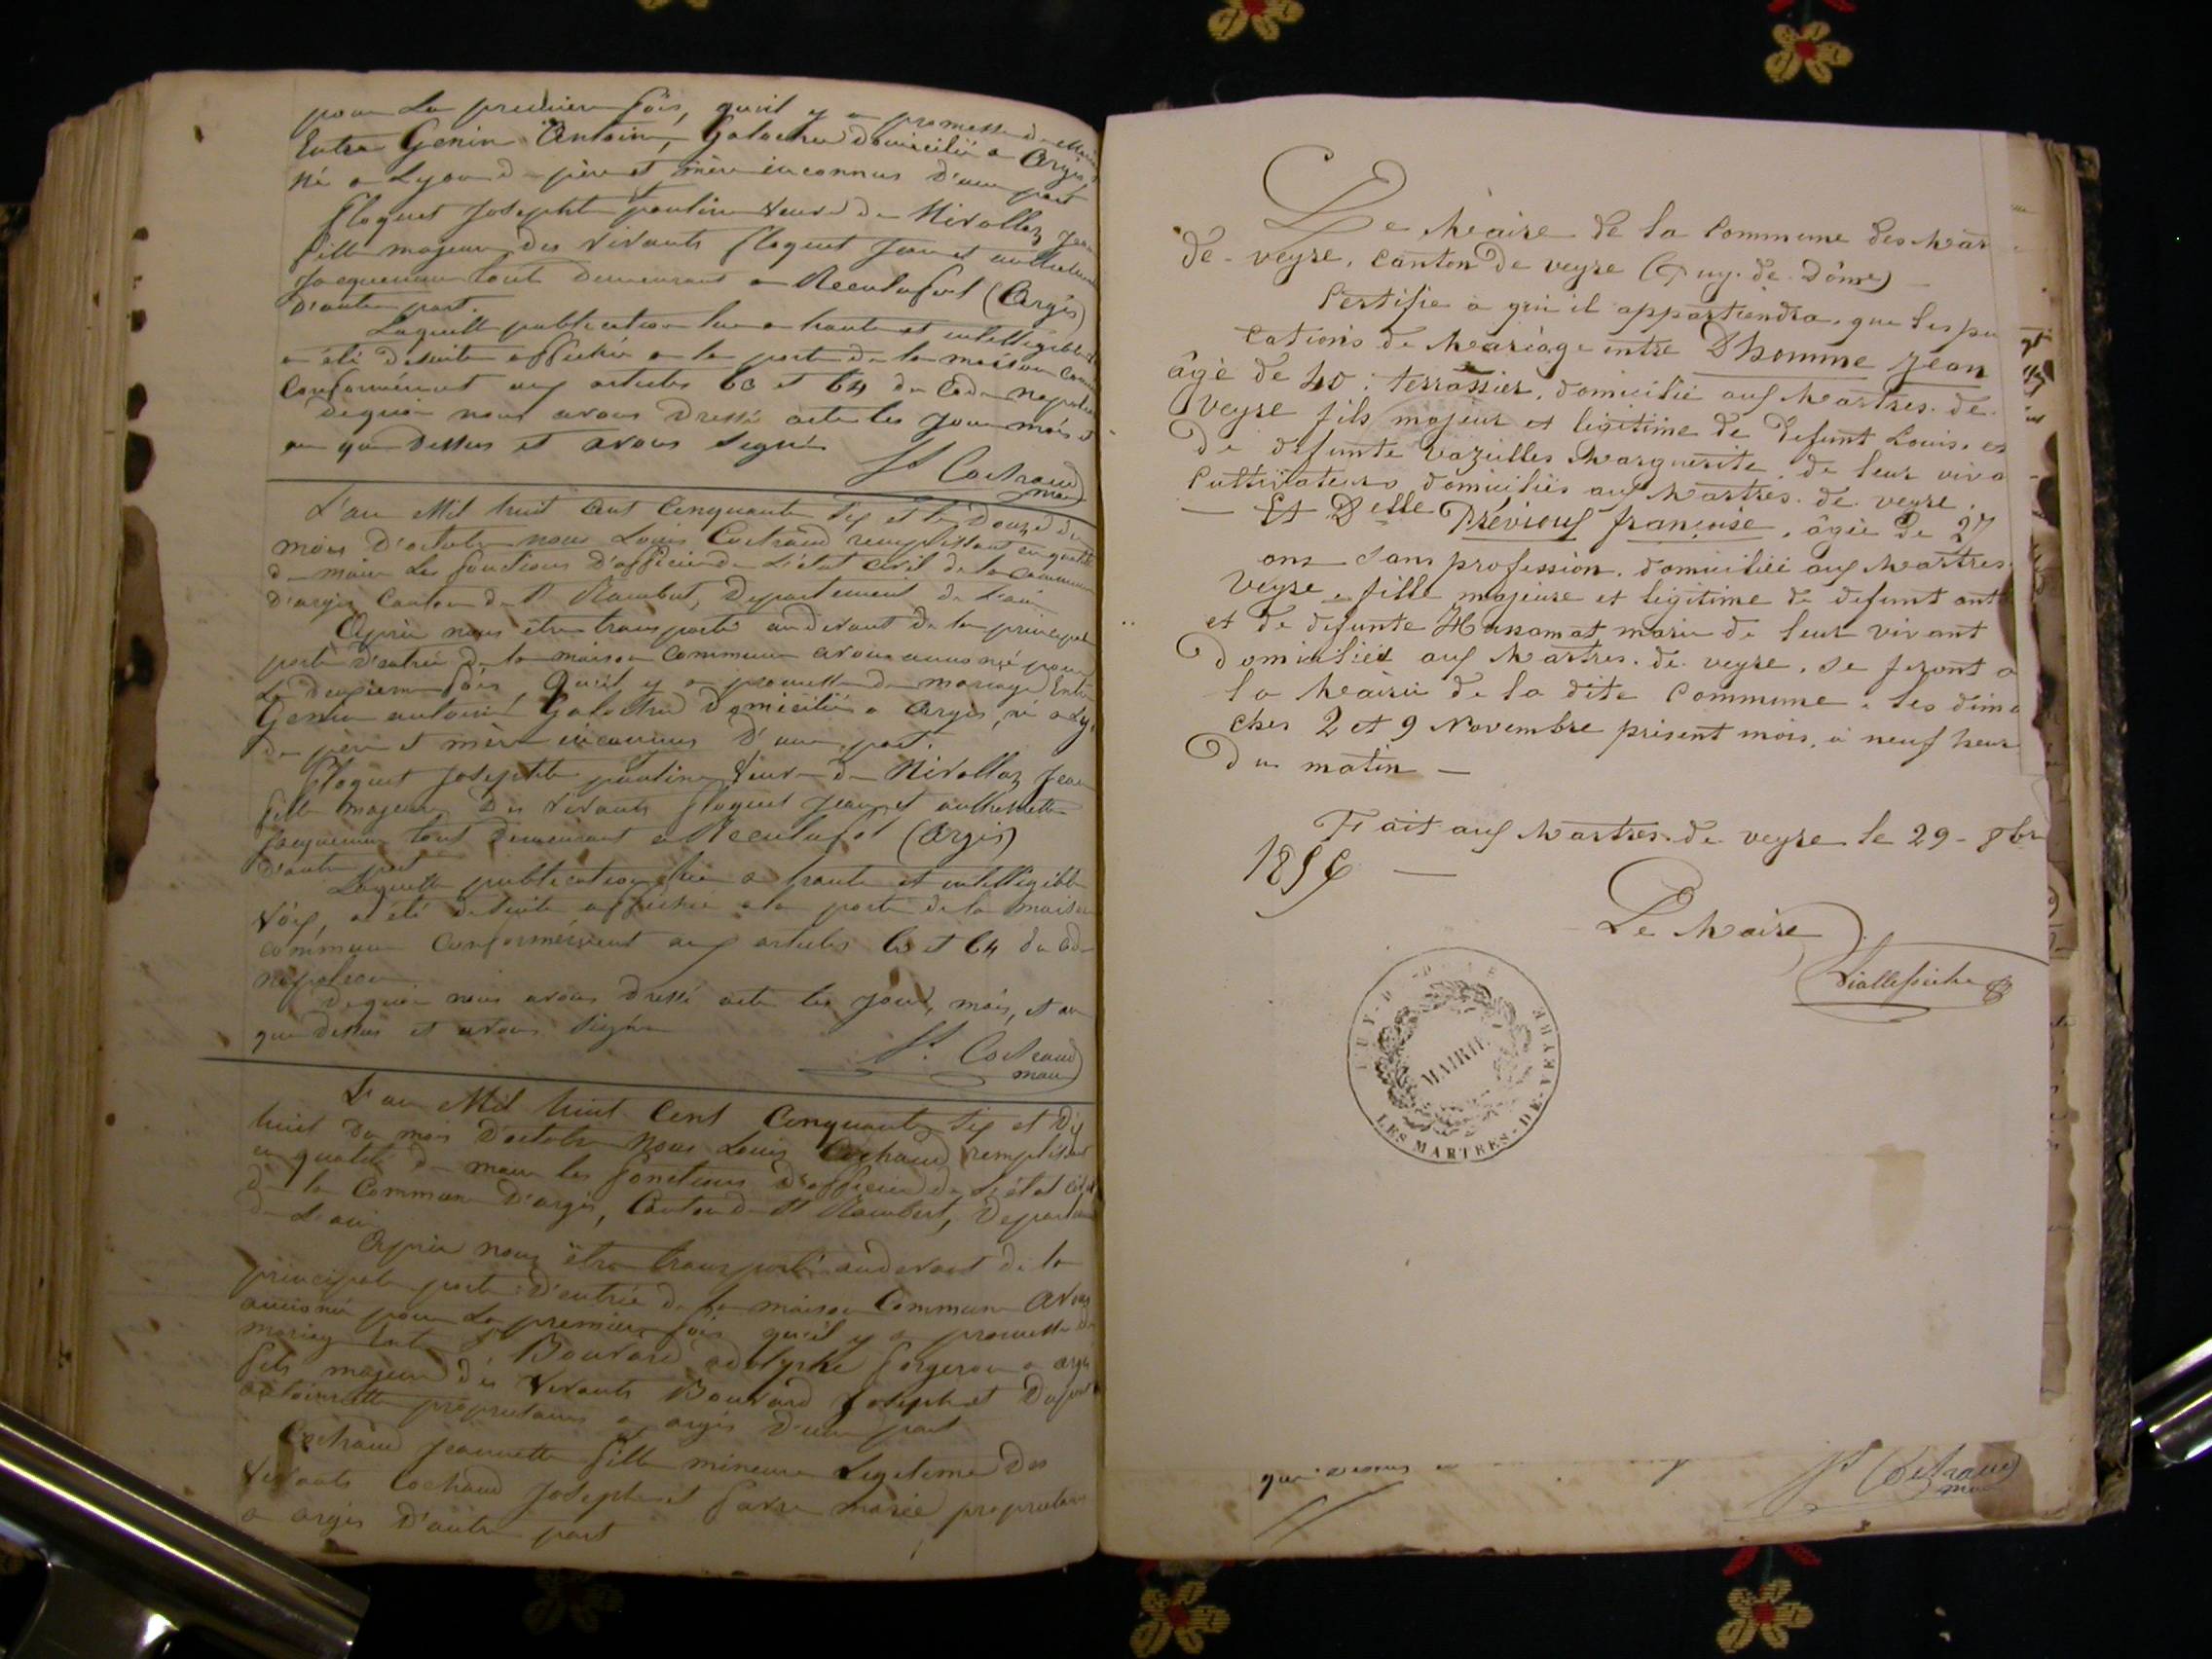 pour La première fois, qu'il y a promesse de Maria
Entre Genin Antoine, Galocher domicilié a Argis
Né a Lyon de père et mère inconnus D'une part
Et
floquet Josephte pauline Veuve de Nivollaz Jean
fille majeure des vivants floquet Jean et
Jacquemin tout demeurant a Reculafol (Argis)
D'autre part.
Laquelle publication lue a haute et intelligible
a été de suite affichée a la porte de la maison Com
Conformément aux articles 63 et 64 du Code Napoléon
De quoi nous avons Dressé acte les Jour mois et
an que Dessus et avons Signé
Lis Cochaud
maire
L'an Mil huit Cent Cinquante Six et le Douze du
mois D'octobre nous Louis Cochaud remplissant en qualité
de maire Les fonctions D'officier de L'état Civil de la Commune
d'argis Canton de St Rambert, Departement de L'ain
Après nous être transporté au devant de la principale
porte D'entrée de la maison Commune avons annoncé pour
La Deuxieme fois, Qu'il y a promesse de mariage Entre
Genin antoine, Galocher Domicilié a Argis, né a Ly
de père et mère inconnus D'une part.
Et
floquet Josephte pauline Veuve de Nivollaz Jean
fille majeure Des Vivants floquet Jean et
Jacquemin tout Demeurant a Reculafol (Argis)
D'autre part
Laquelle publication lue a haute et intelligible
Voix, a été de suite affichée a la porte de la maison
commune Conformément aux articles 63 et 64 du Code
napoleon
De quoi nous avons Dressé acte les Jour, mois, et an
que Dessus et avons Signé
Lis Cochaud
maire
L'an Mil huit Cent Cinquante Six et Dix
huit Du mois D'octobre Nous Louis Cochaud remplissant
en qualité de maire les fonctions D'officier de L'état Civil
de la Commune D'argis, Canton de St Rambert, Departement
de L'ain
Après nous être transporté au devant de la
principale porte D'entrée de la maison Commune Avons
annoncé pour La premiere fois qu'il y a promesse de
mariag Entre Sr Bouvard adolphe forgeron a argis
fils majeur des Vivants Bouvard Joseph et Dupont
antoinette proprietaires a argis D'une part
Et
Cochaud Jeannette fille mineure Legitime Des
Vivants Cochaud Joseph et favre marie proprietaires
a argis D'autre part
Le Maire de la Commune des Mar
de-veyre, canton de veyre (Puy-de-Dôme)
Certifie à qui il appartiendra, que les pu
cations de Mariage entre D'homme Jean
âgé de 40, terrassier, domicilié aux Martres-de-
veyre fils majeur et légitime de défunt Louis, et
De défunte Vazeilles Marguerite de leur viva
Cultivateurs domiciliés aux Martres-de-veyre,
— Et Delle Prévioux françoise, âgée de 27
ans Sans profession, domiciliée aux Martres
Veyre, fille majeure et légitime de defunt ant
et de défunte Hussomat marie de leur vivant
Domiciliés aux Martres-de-veyre, se feront a
la Mairie de la dite Commune, les dima
ches 2 et 9 Novembre présent mois, à neuf heur
Du matin —
Fait aux Martres-de-veyre le 29-8bre
1856 —
Le Maire
PUY-DE-DÔME
MAIRIE
LES MARTRES-DE-VEYRE
que dessus
Lis Cochaud
maire